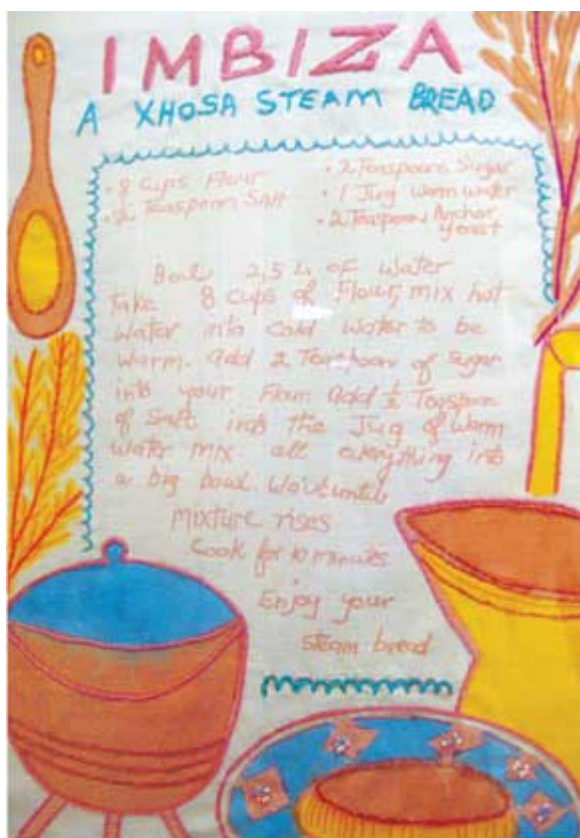 IMBIZA
A XHOSA STEAM BREAD
• 8 Cups Flour
• ½ Teaspoon Salt
• 2 Teaspoons Sugar
• 1 Jug warm water
• 2 Teaspoons Anchor
yeast
Boil 2,5 L of water
Take 8 cups of Flour, mix hot
water into cold water to be
warm. add 2 Teaspoon of Sugar
into your Flour add ½ Teaspoon
of Salt into the Jug of warm
water mix all everything into
a big bowl. Wait until
mixture rises
Cook for 10 minutes
Enjoy your
steam bread